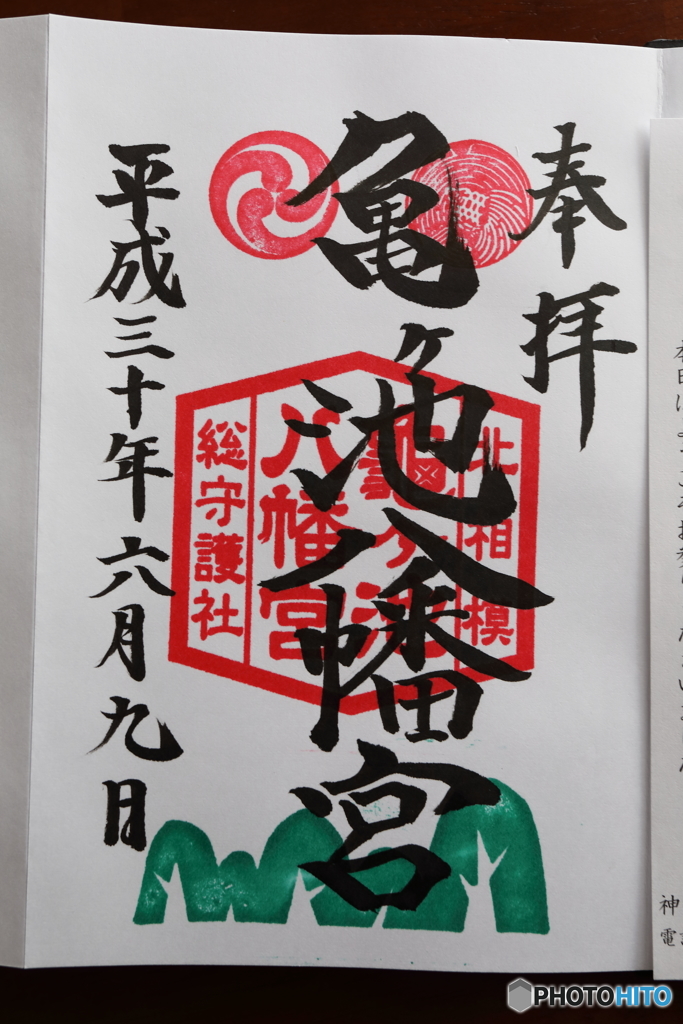 奉拝
亀ヶ池八幡宮
平成三十年六月九日
北相模
亀ヶ池
八幡宮
総守護社
神
電
PHOTOHITO